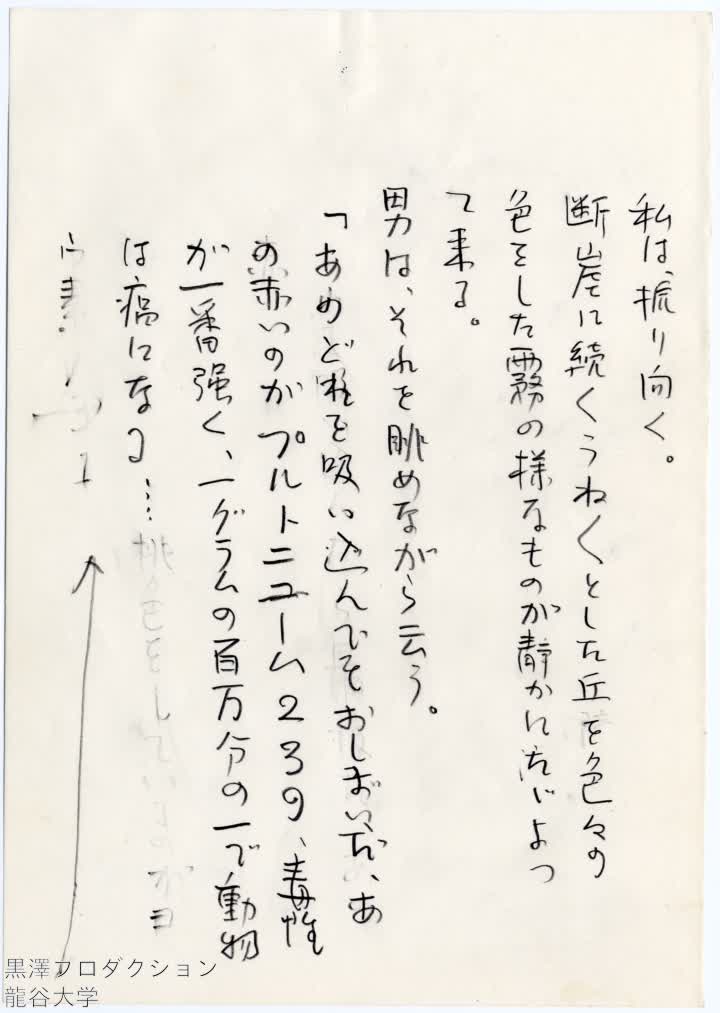 私は、振り向く。
断崖に続くうねくとした丘を色々の
色をした霧の様なものが静かにたゞよっ
て来る。
男は、それを眺めながら云う。
「あめど粒を吸い込んでもおしまいだ、あ
の赤いのがプルトニューム239、毒性
が一番強く、一グラムの百万分の一で動物
は癌になる…
黒澤プロダクション
龍谷大学